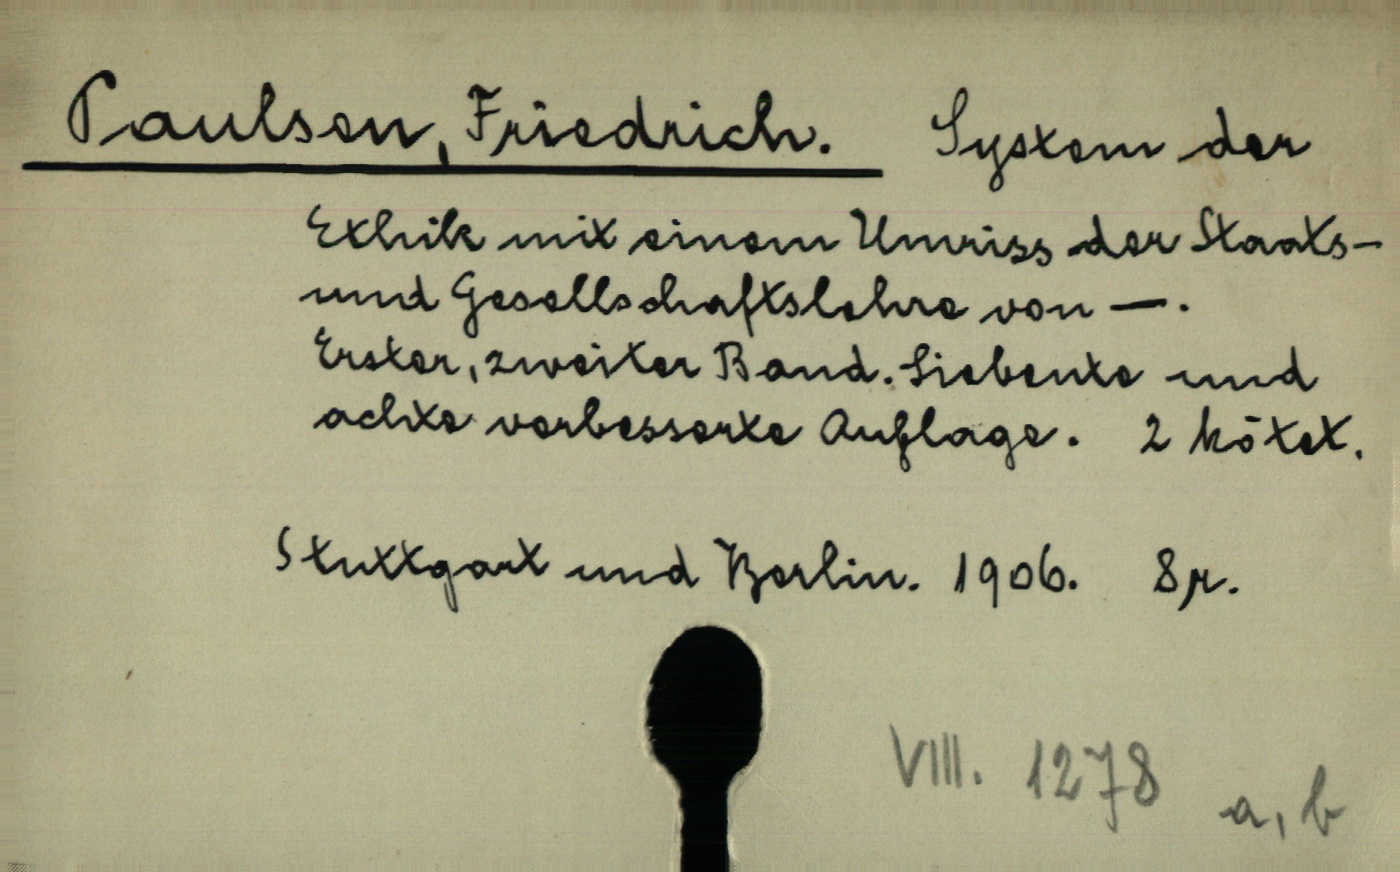 Paulsen, Friedrich. System der
Ethik mit einem Umriss der Staats-
und Gesellschaftslehre von —.
Erster, zweiter Band. Siebente und
achte verbesserte Auflage. 2 kötet.
Stuttgart und Berlin. 1906. 8r.
VIII. 1278 a, b